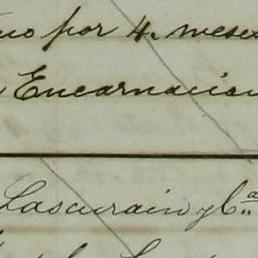 por 4. meses
Encarnacion
Lascurain y Cª